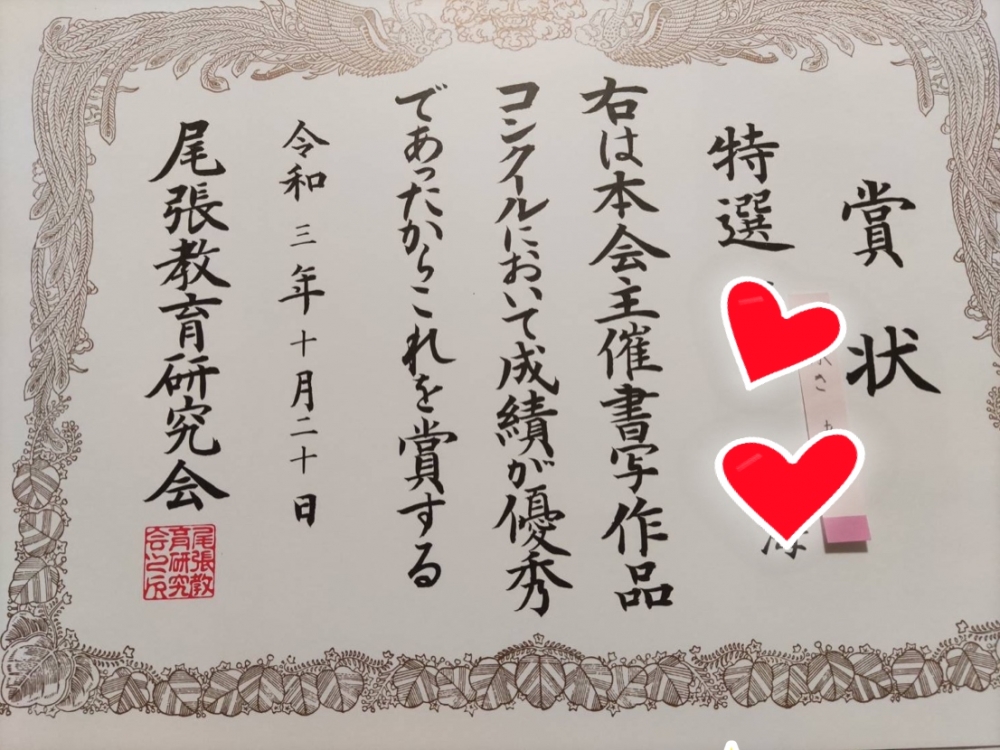 賞状
特選
右は本会主催書写作品
コンクールにおいて成績が優秀
であったからこれを賞する
令和三年十月二十日
尾張教育研究会
尾張教
育研究
会之印